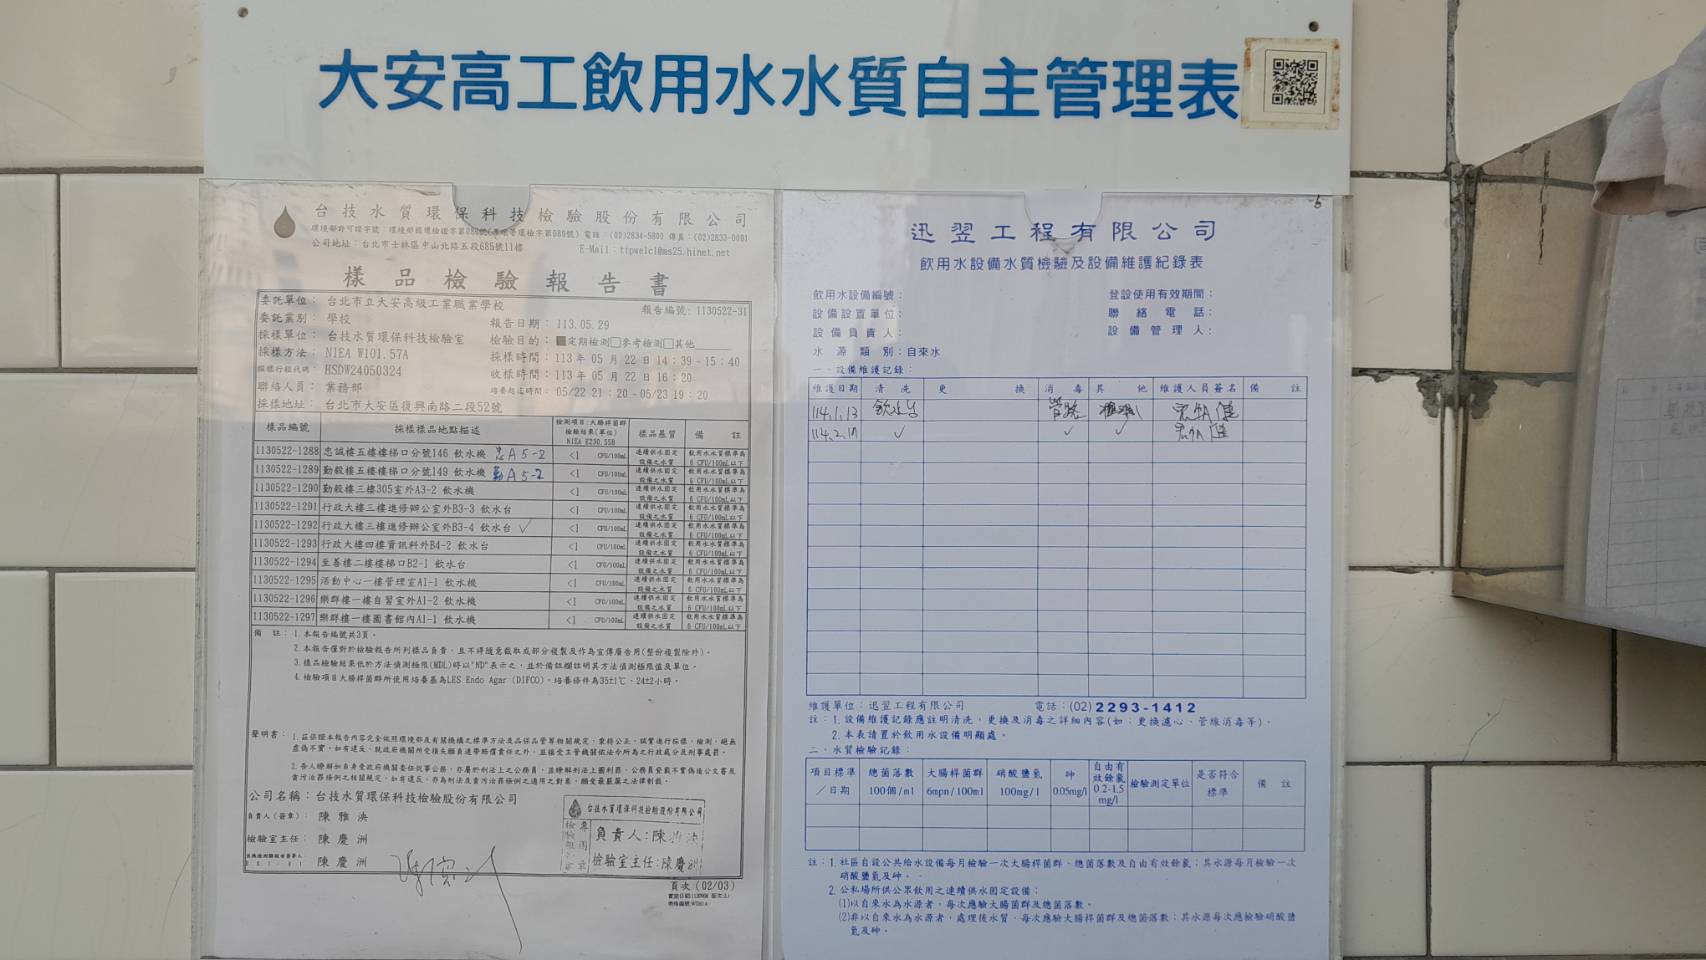 大安高工飲用水水質自主管理表
台技水質環保科技檢驗股份有限公司
公司地址：台北市士林區中山北路五段685號11樓
E-Mail：ttpwelcl@ms25.hinet.net
樣品檢驗報告書
委託單位：台北市立大安高級工業職業學校
報告編號：1130522-31
委託業別：學校
報告日期：113.05.29
採樣單位：台技水質環保科技檢驗室
檢驗目的：■定期檢測□參考檢測□其他
採樣方法：NIEA W101.57A
採樣時間：113年05月22日14：39-15：40
採樣行程代碼：HSDW24050324
收樣時間：113年05月22日16：20
聯絡人員：業務部
培養起迄時間：05/22 21：20-05/23 19：20
採樣地址：台北市大安區復興南路二段52號
樣品編號 採樣樣品地點描述 檢測項目:大腸桿菌群 檢驗結果(單位) NIEA E230.55B 樣品基質 備註
1130522-1288 忠誠樓五樓樓梯口分號146 飲水機 忠A5-2 <1 CFU/100mL 連續供水固定設備之水質 飲用水水質標準為6 CFU/100mL以下
1130522-1289 勤毅樓五樓樓梯口分號149 飲水機 勤A5-2 <1 CFU/100mL 連續供水固定設備之水質 飲用水水質標準為6 CFU/100mL以下
1130522-1290 勤毅樓三樓305室外A3-2 飲水機 <1 CFU/100mL 連續供水固定設備之水質 飲用水水質標準為6 CFU/100mL以下
1130522-1291 行政大樓三樓進修辦公室外B3-3 飲水台 <1 CFU/100mL 連續供水固定設備之水質 飲用水水質標準為6 CFU/100mL以下
1130522-1292 行政大樓三樓進修辦公室外B3-4 飲水台 ✓ <1 CFU/100mL 連續供水固定設備之水質 飲用水水質標準為6 CFU/100mL以下
1130522-1293 行政大樓四樓資訊科外B4-2 飲水台 <1 CFU/100mL 連續供水固定設備之水質 飲用水水質標準為6 CFU/100mL以下
1130522-1294 至善樓二樓樓梯口B2-1 飲水台 <1 CFU/100mL 連續供水固定設備之水質 飲用水水質標準為6 CFU/100mL以下
1130522-1295 活動中心一樓管理室A1-1 飲水機 <1 CFU/100mL 連續供水固定設備之水質 飲用水水質標準為6 CFU/100mL以下
1130522-1296 樂群樓一樓自習室外A1-2 飲水機 <1 CFU/100mL 連續供水固定設備之水質 飲用水水質標準為6 CFU/100mL以下
1130522-1297 樂群樓一樓圖書館內A1-1 飲水機 <1 CFU/100mL 連續供水固定設備之水質 飲用水水質標準為6 CFU/100mL以下
備註：1.本報告編號共3頁。
2.本報告僅對於檢驗報告所列樣品負責，且不得隨意截取或部分複製及作為宣傳廣告用(整份複製除外)。
3.樣品檢驗結果低於方法偵測極限(MDL)時以"ND"表示之，並於備註欄註明其方法偵測極限值及單位。
4.檢驗項目大腸桿菌群所使用培養基為LES Endo Agar (DIFCO)，培養條件為35±1℃、24±2小時。
聲明書：1.茲保證本報告內容完全依照環境部及有關機構之標準方法及品保品管等相關規定，秉持公正、誠實進行採樣、檢測。絕無
虛偽不實，如有違反，就政府機關所受損失願負連帶賠償責任之外，並接受主管機關依法令所為之行政處分及刑事處罰。
2.吾人瞭解如自身受政府機關委任從事公務，亦屬於刑法上之公務員，並瞭解刑法上圖利罪、公務員登載不實偽造公文書及
貪污治罪條例之相關規定，如有違反，亦為刑法及貪污治罪條例之適用之對象，願受最嚴厲之法律制裁。
公司名稱：台技水質環保科技檢驗股份有限公司
負責人(簽章)：陳雅泱
檢驗室主任：陳慶洲
陳慶洲
台技水質環保科技檢驗股份有限公司
負責人:陳雅泱
檢驗室主任:陳慶洲
頁次(02/03)
迅翌工程有限公司
飲用水設備水質檢驗及設備維護紀錄表
飲用水設備編號：
登設使用有效期間：
設備設置單位：
聯絡電話：
設備負責人：
設備管理人：
水源類別：自來水
一、設備維護記錄：
維護日期 清洗 更換 消毒 其他 維護人員簽名 備註
114.1.13 飲水台 管路
✓ ✓ ✓
維護單位：迅翌工程有限公司 電話：(02)2293-1412
註：1.設備維護記錄應註明清洗，更換及消毒之詳細內容(如：更換濾心、管線消毒等)。
2.本表請置於飲用水設備明顯處。
二、水質檢驗記錄：
項目標準／日期 總菌落數 100個/ml 大腸桿菌群 6mpn/100ml 硝酸鹽氮 100mg/l 砷 0.05mg/l 自由有效餘氯 0.2-1.5 mg/l 檢驗測定單位 是否符合標準 備註
註：1.社區自設公共給水設備每月檢驗一次大腸桿菌群、總菌落數及自由有效餘氯；其水源每月檢驗一次
硝酸鹽氮及砷。
2.公私場所供公眾飲用之連續供水固定設備：
(1)以自來水為水源者，每次應驗大腸菌群及總菌落數。
(2)非以自來水為水源者，處理後水質，每次應驗大腸桿菌群及總菌落數；其水源每次應檢驗硝酸鹽
氮及砷。